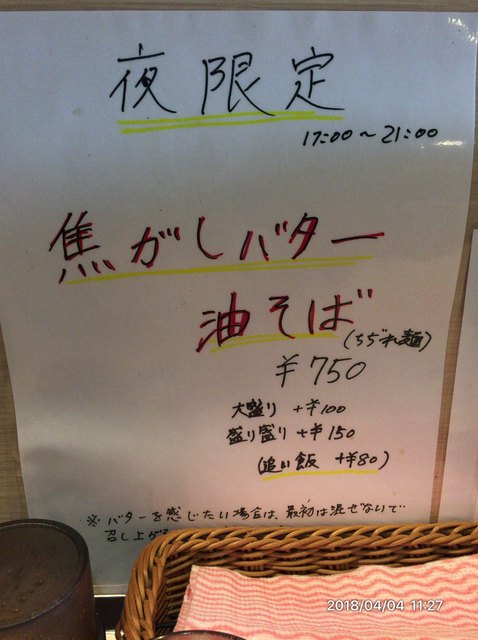 夜限定
17:00〜21:00
焦がしバター
油そば
(ちぢれ麺)
¥750
大盛り +¥100
盛り盛り +¥150
(追い飯 +¥80)
※バターを感じたい場合は、最初は混ぜないで
召し上が
2018/04/04 11:27